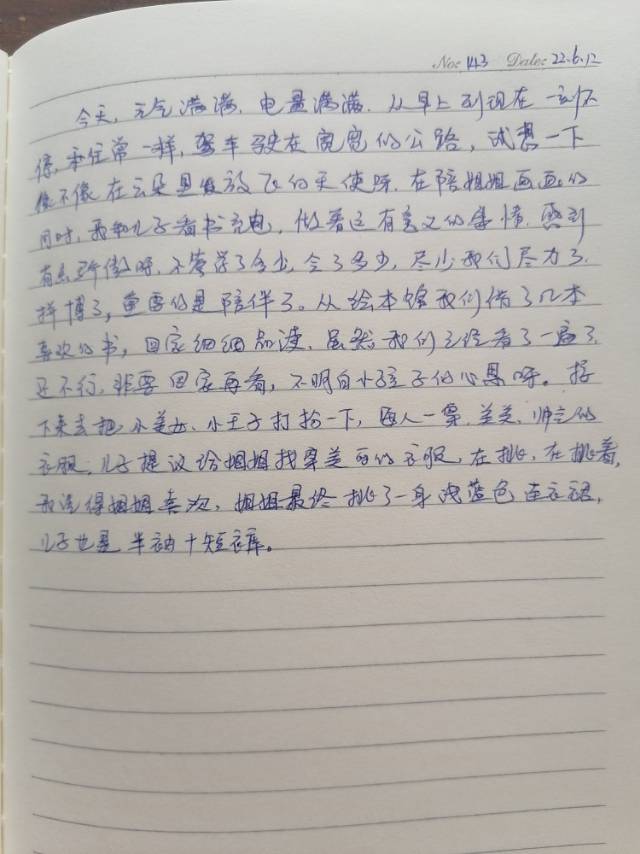 No: 143 Date: 22.6.12
今天,元气满满,电量满满,从早上到现在一刻不
停,和往常一样,驾车驶在宽宽的公路,试想一下
像不像在云朵里放飞的天使呀.在陪姐姐画画的
同时,我和儿子看书充电,做着这有意义的事情.感到
有点骄傲呀,不管学了多少,会了多少,尽少我们尽力了.
拼搏了,重要的是陪伴了。从绘本馆我们借了几本
喜欢的书,回家细细品读,虽然我们已经看了一遍了
还不行,非要回家再看,不明白小孩子的心思呀。接
下来去把小美女、小王子打扮一下,每人一套.美美、帅气的
衣服,儿子提议给姐姐找穿美丽的衣服,在挑,在挑着,
我说得姐姐喜欢,姐姐最终挑了一身浅蓝色连衣裙,
儿子也是半袖十短裤。